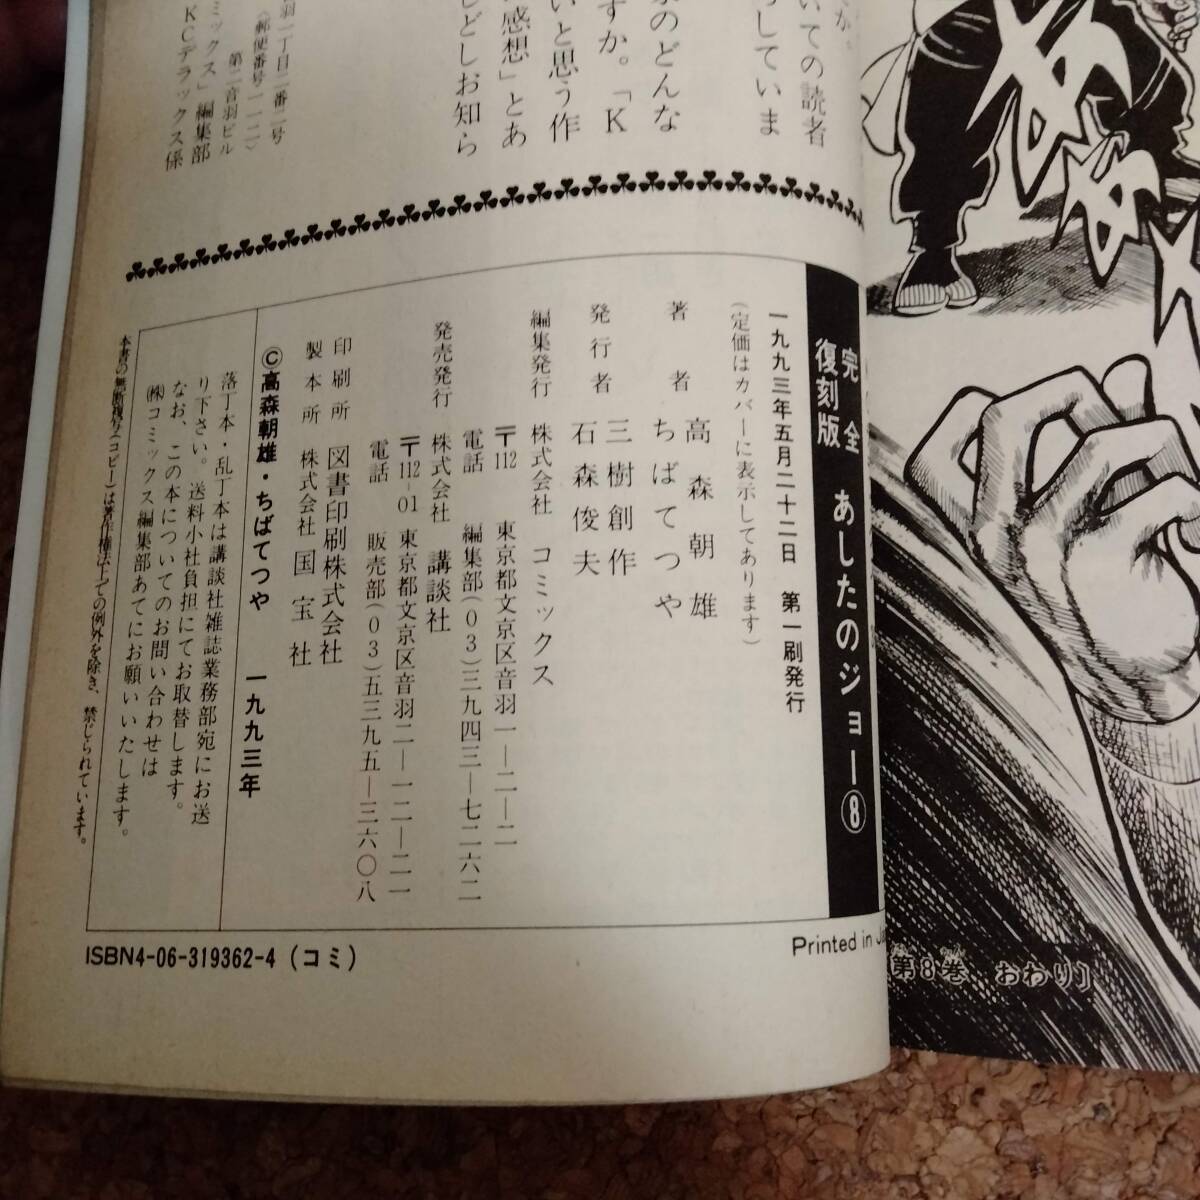 か。
いての読者
らしていま
のどんな
すか。「K
いと思う作
感想」とあ
どしお知ら
羽一丁目二番二号
〈郵便番号一一二〉
第二音羽ビル
ミックス」編集部
KCデラックス係
完全
復刻版
あしたのジョー⑧
一九九三年五月二十二日 第一刷発行
(定価はカバーに表示してあります)
著者 高森朝雄
ちばてつや
発行者 三樹創作
石森俊夫
編集発行 株式会社 コミックス
〒112 東京都文京区音羽一ー二ー二
電話 編集部(03)三九四三ー七二六二
発売発行 株式会社 講談社
〒112-01 東京都文京区音羽二ー一二ー二一
電話 販売部(03)五三九五ー三六〇八
印刷所 図書印刷株式会社
製本所 株式会社 国宝社
©高森朝雄・ちばてつや 一九九三年
落丁本・乱丁本は講談社雑誌業務部宛にお送
り下さい。送料小社負担にてお取替します。
なお、この本についてのお問い合わせは
㈱コミックス編集部あてにお願いいたします。
本書の無断複写(コピー)は著作権法上での例外を除き、禁じられています。
ISBN4-06-319362-4 (コミ)
Printed in J
第8巻 おわり〕